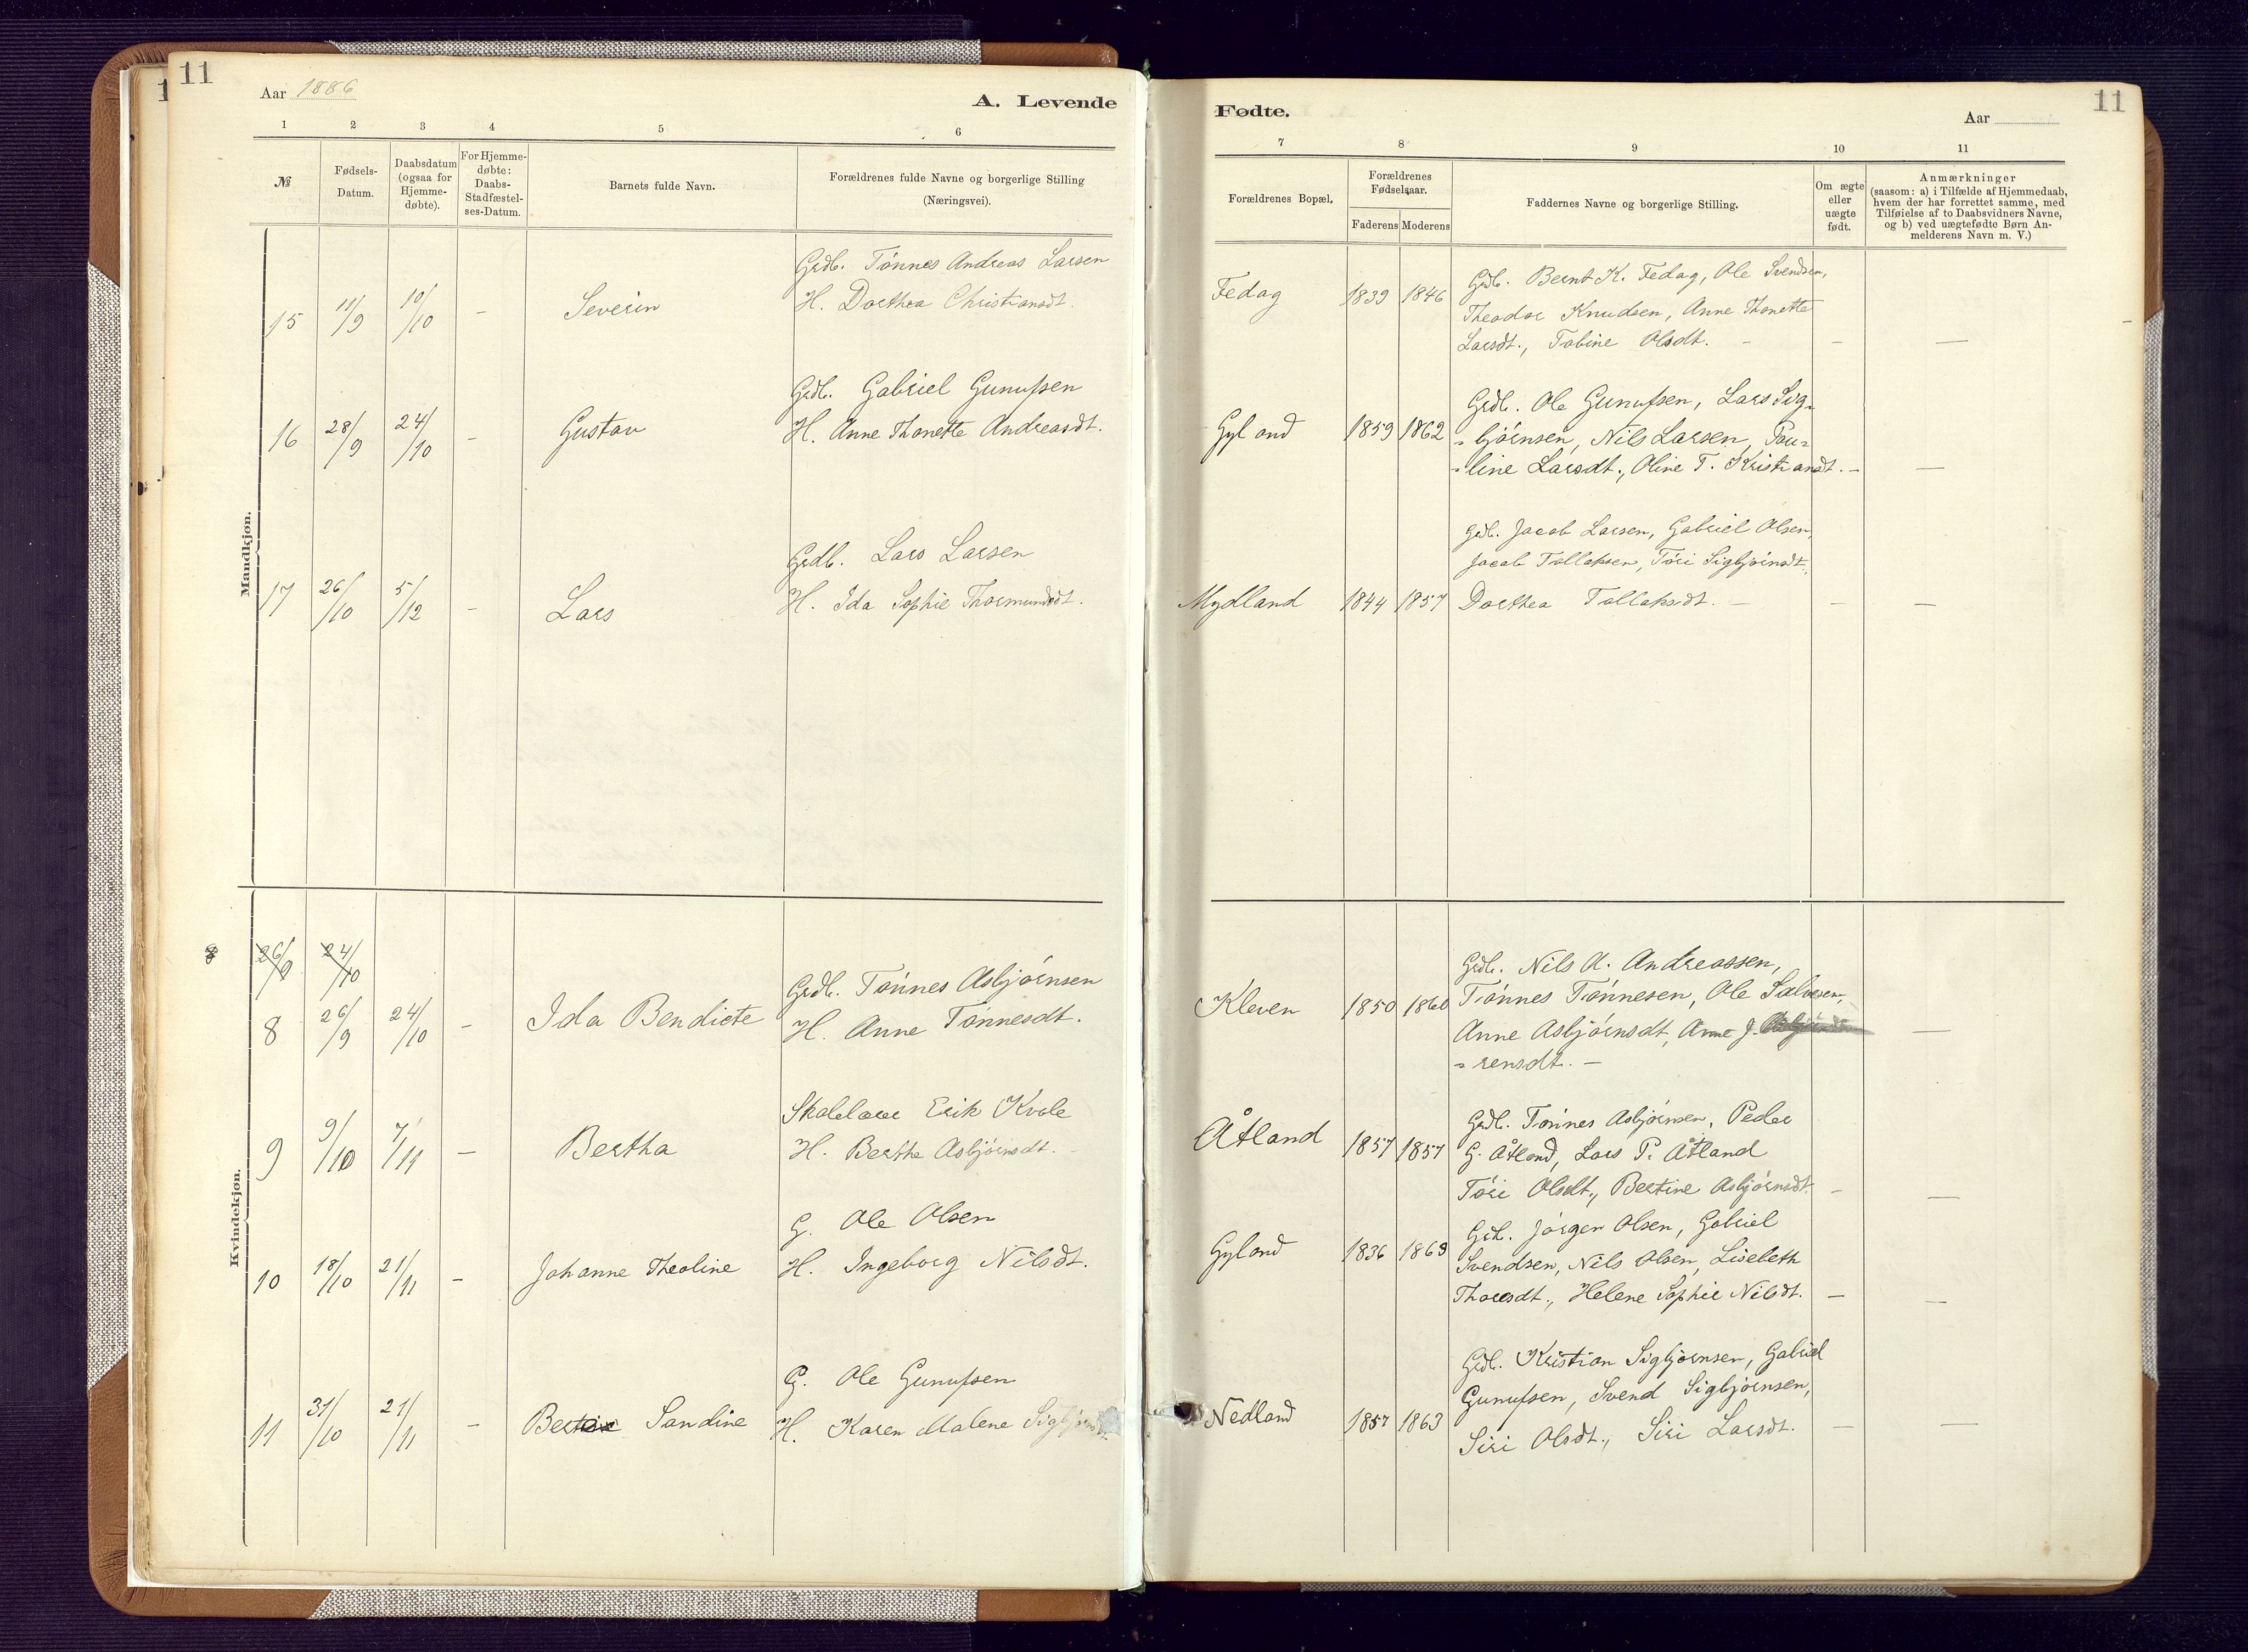 11
Aar 1886
A. Levende
1 2 3 4 5 6
№
Fødsels-
Datum.
Daabsdatum
(ogsaa for
Hjemme-
døbte).
For Hjemme-
døbte:
Daabs-
Stadfæstel-
ses-Datum.
Barnets fulde Navn.
Forældrenes fulde Navne og borgerlige Stilling
(Næringsvei).
Mandkjøn.
15 11/9 10/10 - Severin
Grdb. Tønnes Andreas Larsen
H. Dorthea Christiansdt.
16 28/9 24/10 - Gustav
Grdb. Gabriel Gunufsen
H. Anne Thonette Andreasdt.
17 26/10 5/12 - Lars
Grdb. Lars Larsen
H. Ida Sophie Thormundsdt.
Kvindekjøn.
8 26/9 24/10
8 26/9 24/10 - Ida Bendicte
Grdb. Tønnes Asbjørnsen
H. Anne Tønnesdt.
9 9/10 7/11 - Bertha
Skolelærer Erik Kvale
H. Berthe Asbjørnsdt.
10 18/10 21/11 - Johanne Theoline
G. Ole Olsen
H. Ingeborg Nilsdt.
11 31/10 21/11 - Sandine
G. Ole Gunufsen
H. Karen Malene
Fødte.
Aar
11
7 8 9 10 11
Forældrenes Bopæl.
Forældrenes
Fødselsaar.
Faderens Moderens
Faddernes Navne og borgerlige Stilling.
Om ægte
eller
uægte
født.
Anmærkninger
(saasom: a) i Tilfælde af Hjemmedaab,
hvem der har forrettet samme, med
Tilføielse af to Daabsvidners Navne,
og b) ved uægtefødte Børn An-
melderens Navn m. V.)
Fedag 1839 1846
Grdb. Bernt K. Fedag, Ole Svendsen,
Theodor Knudsen, Anne Thonette
Larsdt., Tobine Olsdt. - - -
Gyland 1859 1862
Grdb. Ole Gunufsen, Lars Sig-
-bjørnsen, Nils Larsen, Pau-
-line Larsdt., Oline T. Kristiansdt. - -
Mydland 1844 1857
Grdb. Jacob Larsen, Gabriel Olsen,
Jacob Tollaksen, Tóri Sigbjørnsdt.,
Dorthea Tollaksdt. - - -
Kleven 1850 1860
Grdb. Nils A. Andreassen,
Tønnes Tønnesen, Ole Salvesen,
Anne Asbjørnsdt, Anne J.
-rensdt. - -
Åtland 1857 1857
Grdb. Tønnes Asbjørnsen, Peder
G. Åtland, Lars P. Åtland
Tóri Olsdt., Bertine Asbjørnsdt. - -
Gyland 1836 1869
Grdb. Jørgen Olsen, Gabriel
Svendsen, Nils Olsen, Lisebeth
Thoresdt., Helene Sophie Nilsdt. - -
Nedland 1857 1863
Grdb. Kristian Sigbjørnsen, Gabriel
Gunufsen, Svend Sigbjørnsen,
Siri Olsdt., Siri Larsdt. - -